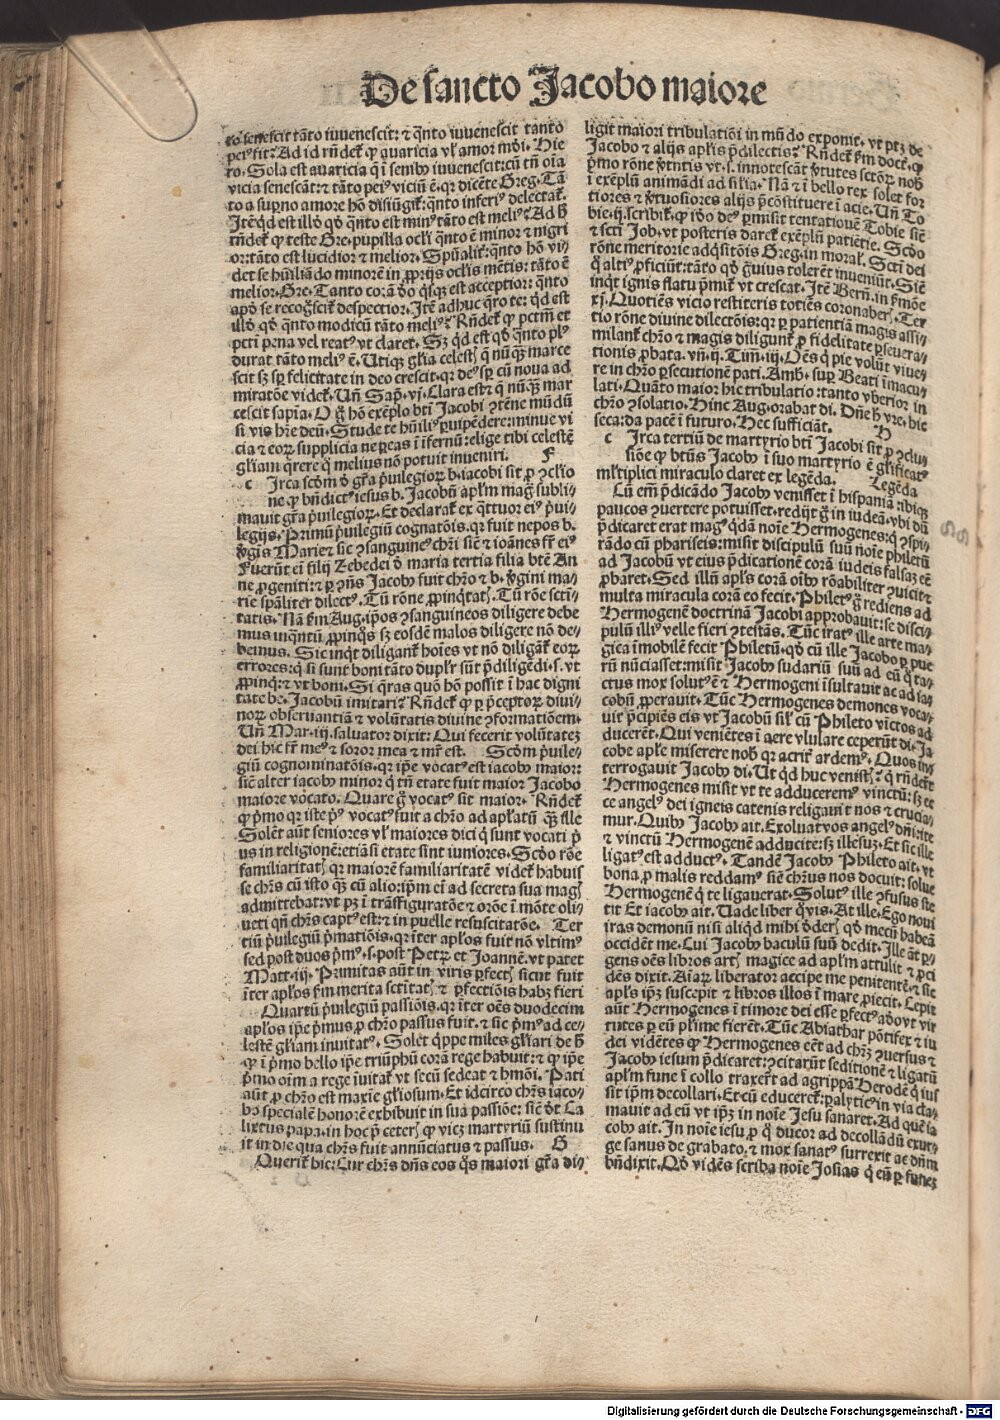 De sancto Jacobo maiore
to senescit tāto iuuenescit: ⁊ q̄nto iuuenescit tanto
peiꝰ fit? Ad id rn̄det̄ ꝙ auaricia vl̓ amor mūdi. Hie
ro. Sola est auaricia q̄ ī senibꝰ iuuenescit: cū tn̄ oīa
vicia senescāt: ⁊ tāto peiꝰ viciū ē. qr̄ dicēte Greg. Tā
to a sup̄no amore hō disiūgit̄: q̄nto inferiꝰ delectat̄.
Itē qd̓ est illō qd̓ q̄nto est minꝰ tāto est meliꝰ? Ad h̄
rn̄det̄ ꝙ teste Gre. pupilla ocli̓ q̄nto ē minor ⁊ nigri
or: tāto est lucidior ⁊ melior. Spūalit̄: q̄nto hō vi/
det se hūiliādo minorē in ꝓprijs oclis̓ mētis: tāto ē
melior. Gre. Tanto corā dō q̄sqꝫ est acceptior: q̄nto
apd̓ se recog̓scit̄ despectior. Itē adhuc q̄ro te: qd̓ est
illō qd̓ q̄nto modicū tāto meliꝰ? Rn̄det̄ ꝙ pctm̄ et
pctī pena vel reatꝰ vt claret. Sꝫ qd̓ est qd̓ q̄nto plꝰ
durat tāto meliꝰ ē. Utiqꝫ gl̓ia celestꝭ q̄ nūq̄ꝫ marce
scit sꝫ sp̄ felicitate in deo crescit. qr̄ deꝰ sp̄ cū noua ad
miratōe videt̄. Un̄ Sap̄. vj. Clara est? ⁊ q̄ nūq̄ꝫ mar
cescit sapīa. O g̊ hō exēplo btī Jacobi ꝯtēne mūdū
si vis hr̄e deū. Stude te hūilit̓ ꝑuipēdere: minue vi
cia ⁊ eoꝝ supplicia ne ꝑeas ī īfernū: elige tibi celestē
gl̓iam q̄rere q̄ melius nō potuit inueniri. F
c Irca scd̓m d̓ gr̄a p̄uilegioꝝ b. iacobi sit ꝓ ꝯclīo
ne ꝙ bn̄dictꝰ iesus b. Jacobū apl̓m mag̓ subli/
mauit gr̄a p̄uilegioꝝ. Et declarat̄ ex q̄ttuor eiꝰ p̄ui/
legijs. Primū p̄uilegiū cognatōis. qr̄ fuit nepos b.
v̓gis Marie ⁊ sic ꝯsanguineꝰ chr̄i sic̄ ⁊ ioānes fr̄ eiꝰ
Fuerūt eī filij Zebedei d̓ maria tertia filia btē An
ne ꝓgeniti: ⁊ ꝑ ꝯn̄s Jacobꝰ fuit chr̄o ⁊ b. v̓gini ma/
rie spāliter dilectꝰ. Tū rōne ꝓpinq̄tatꝭ. Tū rōe sctī/
tatis. Nā fm̄ Aug. ip̄os ꝯsanguineos diligere debe
mus inq̄ntū ꝓpinq̄s sꝫ eosdē malos diligere nō de/
bemus. Sic inq̄t diligant̄ hoīes vt nō diligāt̄ eoꝝ
errores: q̄ si sunt boni tāto dupl̓r sūt p̄diligēdi. s. vt
ꝓpinq̄: ⁊ vt boni. Si q̄ras quō hō possit ī hac digni
tate be. Jacobū imitari? Rn̄det̄ ꝙ ꝑ p̄ceptoꝝ diui/
noꝝ obseruantiā ⁊ volūtatis diuine ꝯformatiōem.
Un̄ Mar. iij. saluator dixit: Qui fecerit volūtatez
dei hic fr̄ meꝰ ⁊ soror mea ⁊ mr̄ est. Scd̓m p̄uile/
giū cognominatōis. qr̄ ip̄e vocatꝰ est iacobꝰ maior:
sic̄ alter iacobꝰ minor q̄ tn̄ etate fuit maior Jacobo
maiore vocato. Quare g̊ vocatꝰ sit maior. Rn̄det̄
ꝙ p̄mo qr̄ iste p̄ꝰ vocatꝰ fuit a chr̄o ad apl̓atū q̄ꝫ ille
Solēt aūt seniores vl̓ maiores dici q̄ sunt vocati p̄
us in religionē: etiā si etate sint iuniores. Scd̓o rōe
familiaritatꝭ qr̄ maiorē familiaritatē videt̄ habuis
se chr̄s cū isto q̄ꝫ cū alio: ip̄m eī ad secreta sua magꝭ
admittebat: vt pꝫ ī trāsfiguratōe ⁊ orōe ī mōte oli/
ueti qn̄ chr̄s captꝰ est: ⁊ in puelle resuscitatōe. Ter
tiū p̄uilegiū p̄matiōis. qr̄ īter apl̓os fuit nō vltimꝰ
sed post duos p̄mꝰ. s. post Petꝝ et Joannē. vt patet
Matt. iij. Primitas aūt in viris ꝑfectꝭ sicut fuit
īter apl̓os fm̄ merita sctītatꝭ ⁊ ꝑfectiōis habꝫ fieri
Quartū p̄uilegiū passiōis. qr̄ īter oēs duodecim
apl̓os ip̄e p̄mus ꝓ chr̄o passus fuit. ⁊ sic p̄mꝰ ad ce/
lestē gl̓iam inuitatꝰ. Solēt q̄ppe miles gl̓iari de h̄
ꝙ ī p̄mo bello ip̄e triūphū corā rege habuit: ⁊ ꝙ ip̄e
p̄mo oīm a rege īuitat̄ vt secū sedeat ⁊ hmōi. Pati
aūt ꝓ chr̄o est maxīe gl̓iosum. Et idcirco chr̄s iaco/
bo specialē honorē exhibuit in sua passiōe: sic̄ d̓t Ca
lixtus papa. in hoc p̄ ceterꝭ ꝙ vicꝫ martyriū sustinu
it in die qua chr̄s fuit annūciatus ⁊ passus. G
Querit̄ hic: Cur chr̄s dn̄s eos q̄s maiori gr̄a di/
ligit maiori tribulatiōi in mūdo exponit. vt ptꝫ de
Jacobo ⁊ alijs apl̓is p̄dilectis? Rn̄det̄ fm̄ doct̄. ꝙ
p̄mo rōne v̓tutis vt. s. innotescāt v̓tutes sctōꝝ nob̓
ī exēplū animādi ad sīlia. Nā ⁊ ī bello rex solet for
tiores ⁊ v̓tuosiores alijs p̄cōstituere ī acie. Un̄ To
bie. ij. scribit̄. ꝙ iō deꝰ ꝑmisit tentationē Tobie sic̄
⁊ sctī Job. vt posteris daret̄ exēplū patiētie. Scd̓o
rōne meritorie adq̄sitōis Greg. in moral̓. Sctī dei
q̄ altiꝰ ꝓficiūt: tāto qd̓ g̓uius tolerēt inueniūt. Sic̄
inq̄t ignis flatu p̄mit̄ vt crescat. Itē Bern̄. in s̓mōe
xj. Quotiēs vicio restiteris totiēs coronaberꝭ. Ter
tio rōne diuine dilectōis: qr̄ ꝑ patientiā magis assi/
milant̄ chr̄o ⁊ magis diligunt̄ ꝓ fidelitate ꝑseuera/
tionis ꝓbata. vn̄. ij. Tim̄. iij. Oēs q̄ pie volūt viue/
re in chr̄o ꝑsecutionē pati. Amb̓. suꝑ Beati īmacu/
lati. Quāto maior hic tribulatio: tanto vberior in
chr̄o ꝯsolatio. Hinc Aug. orabat di. Dn̄e h̄ vre. hic
seca: da pacē ī futuro. Hec sufficiāt. H
c Irca tertiū de martyrio btī Jacobi sit ꝓ ꝯclu/
siōe ꝙ btūs Jacobꝰ ī suo martyrio ē gl̓ificatꝰ
ml̓tiplici miraculo claret ex legēda. Legēda
Cū em̄ p̄dicādo Jacobꝰ venisset ī hispaniā: ibiqꝫ
paucos ꝯuertere potuisset. redijt g̊ in iudeā. vbi dū
p̄dicaret erat magꝰ q̄dā noīe Hermogenes: q̄ ꝯspi/
rādo cū phariseis: misit discipulū suū noīe philetū
ad Jacobū vt eius p̄dicationē corā iudeis falsaꝫ eē
ꝓbaret. Sed illū apl̓s corā oībꝰ rōabiliter ꝯuicit ⁊
multa miracula corā eo fecit. Philetꝰ g̊ rediens ad
Hermogenē doctrinā Jacobi approbauit: se disci/
pulū illiꝰ velle fieri ꝯtestās. Tūc iratꝰ ille arte ma/
gica īmobilē fecit Philetū. qd̓ cū ille Jacobo ꝑ pue
rū nūciasset: misit Jacobꝰ sudariū suū ad eū q̄ ta/
ctus mox solutꝰ ē ⁊ Hermogeni īsultauit ac ad ia/
cobū ꝓperauit. Tūc Hermogenes demones voca/
uit p̄cipiēs eis vt Jacobū sil̓ cū Phileto vīctos ad
ducerēt. Qui veniētes ī aere vlulare ceperūt di. Ja
cobe apl̓e miserere nob̓ qr̄ acrit̓ ardemꝰ. Quos in/
terrogauit Jacobꝰ di. Ut qd̓ huc venistꝭ? q̄ rn̄derūt
Hermogenes misit vt te adduceremꝰ vinctū: sꝫ ec
ce angelꝰ dei igneis catenis religauit nos ⁊ crucia/
mur. Quibꝰ Jacobꝰ ait. Exoluat vos angelꝰ dn̄i: ite
⁊ vinctū Hermogenē adducite: sꝫ illesuꝫ. Et sic ille
ligatꝰ est adductꝰ. Tandē Jacobꝰ Phileto ait. vt
bona ꝓ malis reddamꝰ sic̄ chr̄us nos docuit: solue
Hermogenē q̄ te ligauerat. Solutꝰ ille ꝯfusus ste
tit Et iacobꝰ ait. Uade liber q̊vis. At ille. Ego noui
iras demonū nisi aliqd̓ mihi d̓derꝭ qd̓ mecū habeā
occidēt me. Cui Jacobꝰ baculū suū dedit. Ille āt ꝑ/
gens oēs libros artꝭ magice ad apl̓m attulit ⁊ ꝓci
dēs dixit. Aīaꝝ liberator accipe me penitentē. ⁊ sic
apl̓s ip̄ꝫ suscepit ⁊ libros illos ī mare ꝓiecit. Cepit
aūt Hermogenes ī timore dei esse ꝑfectꝰ ado vt vir
tutes ꝑ eū pl̓ime fierēt. Tūc Abiathar pōtifex ⁊ iu
dei vidētes ꝙ Hermogenes eēt ad chr̄ꝫ ꝯuersus ⁊
Jacobꝰ iesum p̄dicaret: ꝯcitarūt seditionē ⁊ ligatū
apl̓m fune ī collo traxer̄t ad agrippā Herodē q̄ ius
sit ip̄m decollari. Et cū educeret̄: ꝑalyticꝰ in via cla/
mauit ad eū vt ip̄ꝫ in noīe Jesu sanaret. Ad quē ia
cobꝰ ait. In noīe iesu ꝓ q̊ ducor ad decollādū exur/
ge sanus de grabato. ⁊ mox sanatꝰ surrexit ac dn̄m
bn̄dixit. Qd̓ vidēs scriba noīe Josias q̄ eū ꝑ funeꝫ
Digitalisierung gefördert durch die Deutsche Forschungsgemeinschaft - DFG